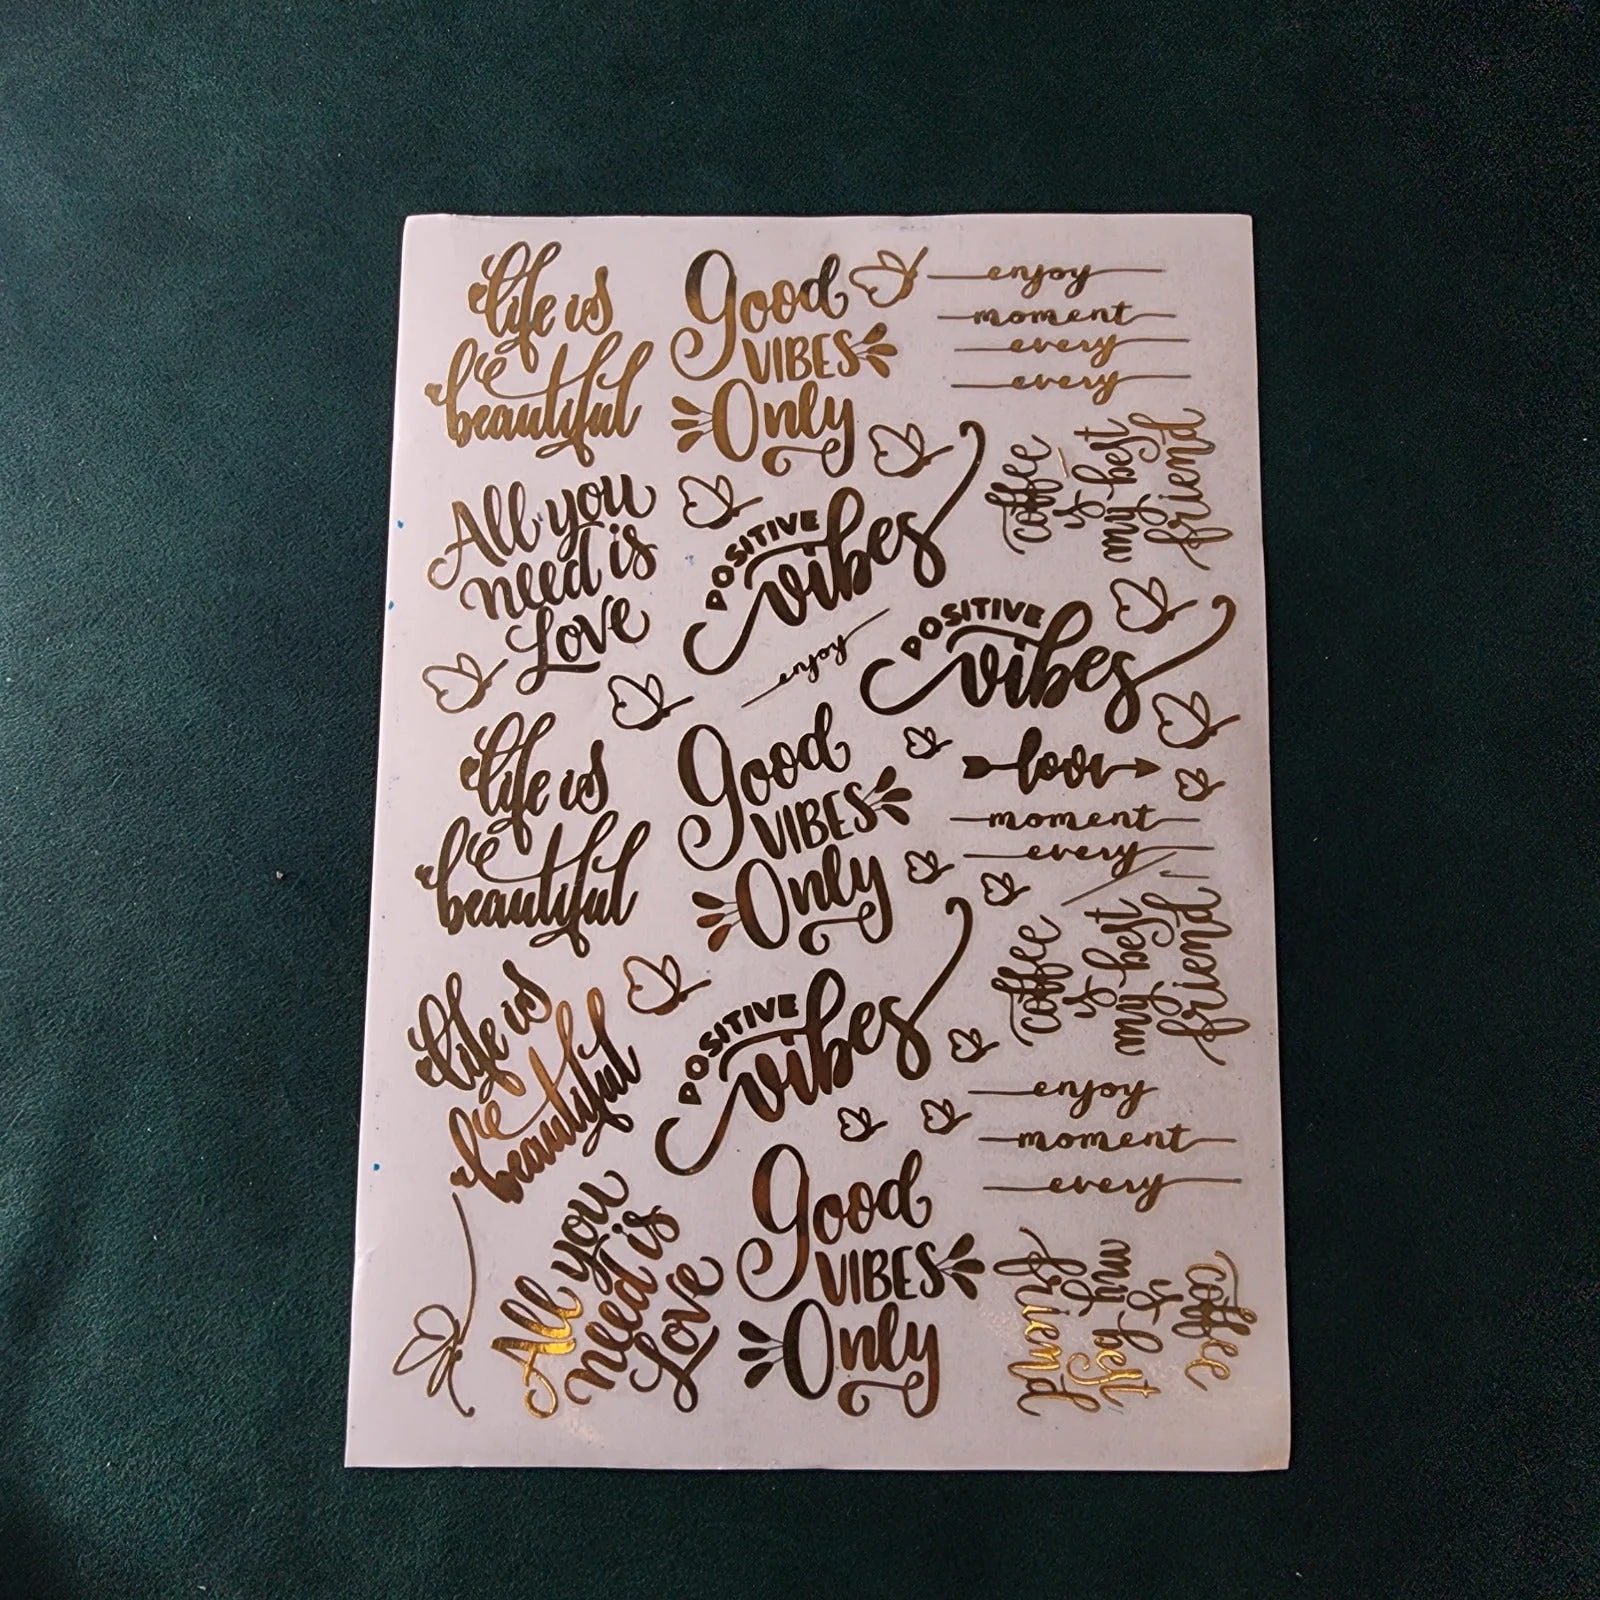 life is
beautiful
Good
VIBES
Only
enjoy
moment
every
every
coffee
is
my best
friend
All you
need is
Love
POSITIVE
vibes
enjoy
POSITIVE
vibes
life is
beautiful
Good
VIBES
Only
love
moment
every
coffee
is
my best
friend
life is
beautiful
POSITIVE
vibes
enjoy
moment
every
All you
need is
Love
Good
VIBES
Only
coffee
is
my best
friend